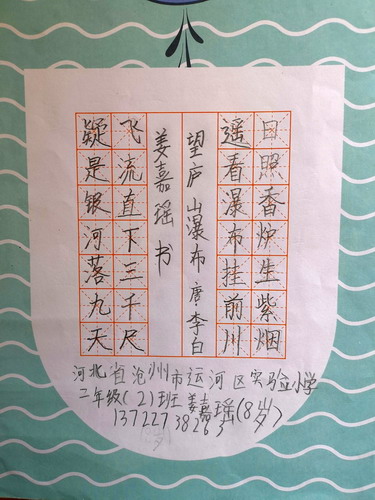 日照香炉生紫烟
遥看瀑布挂前川
望庐山瀑布 唐·李白
姜嘉瑶书
飞流直下三千尺
疑是银河落九天
河北省沧州市运河区实验小学
二年级(2)班姜嘉瑶(8岁)
13722738263